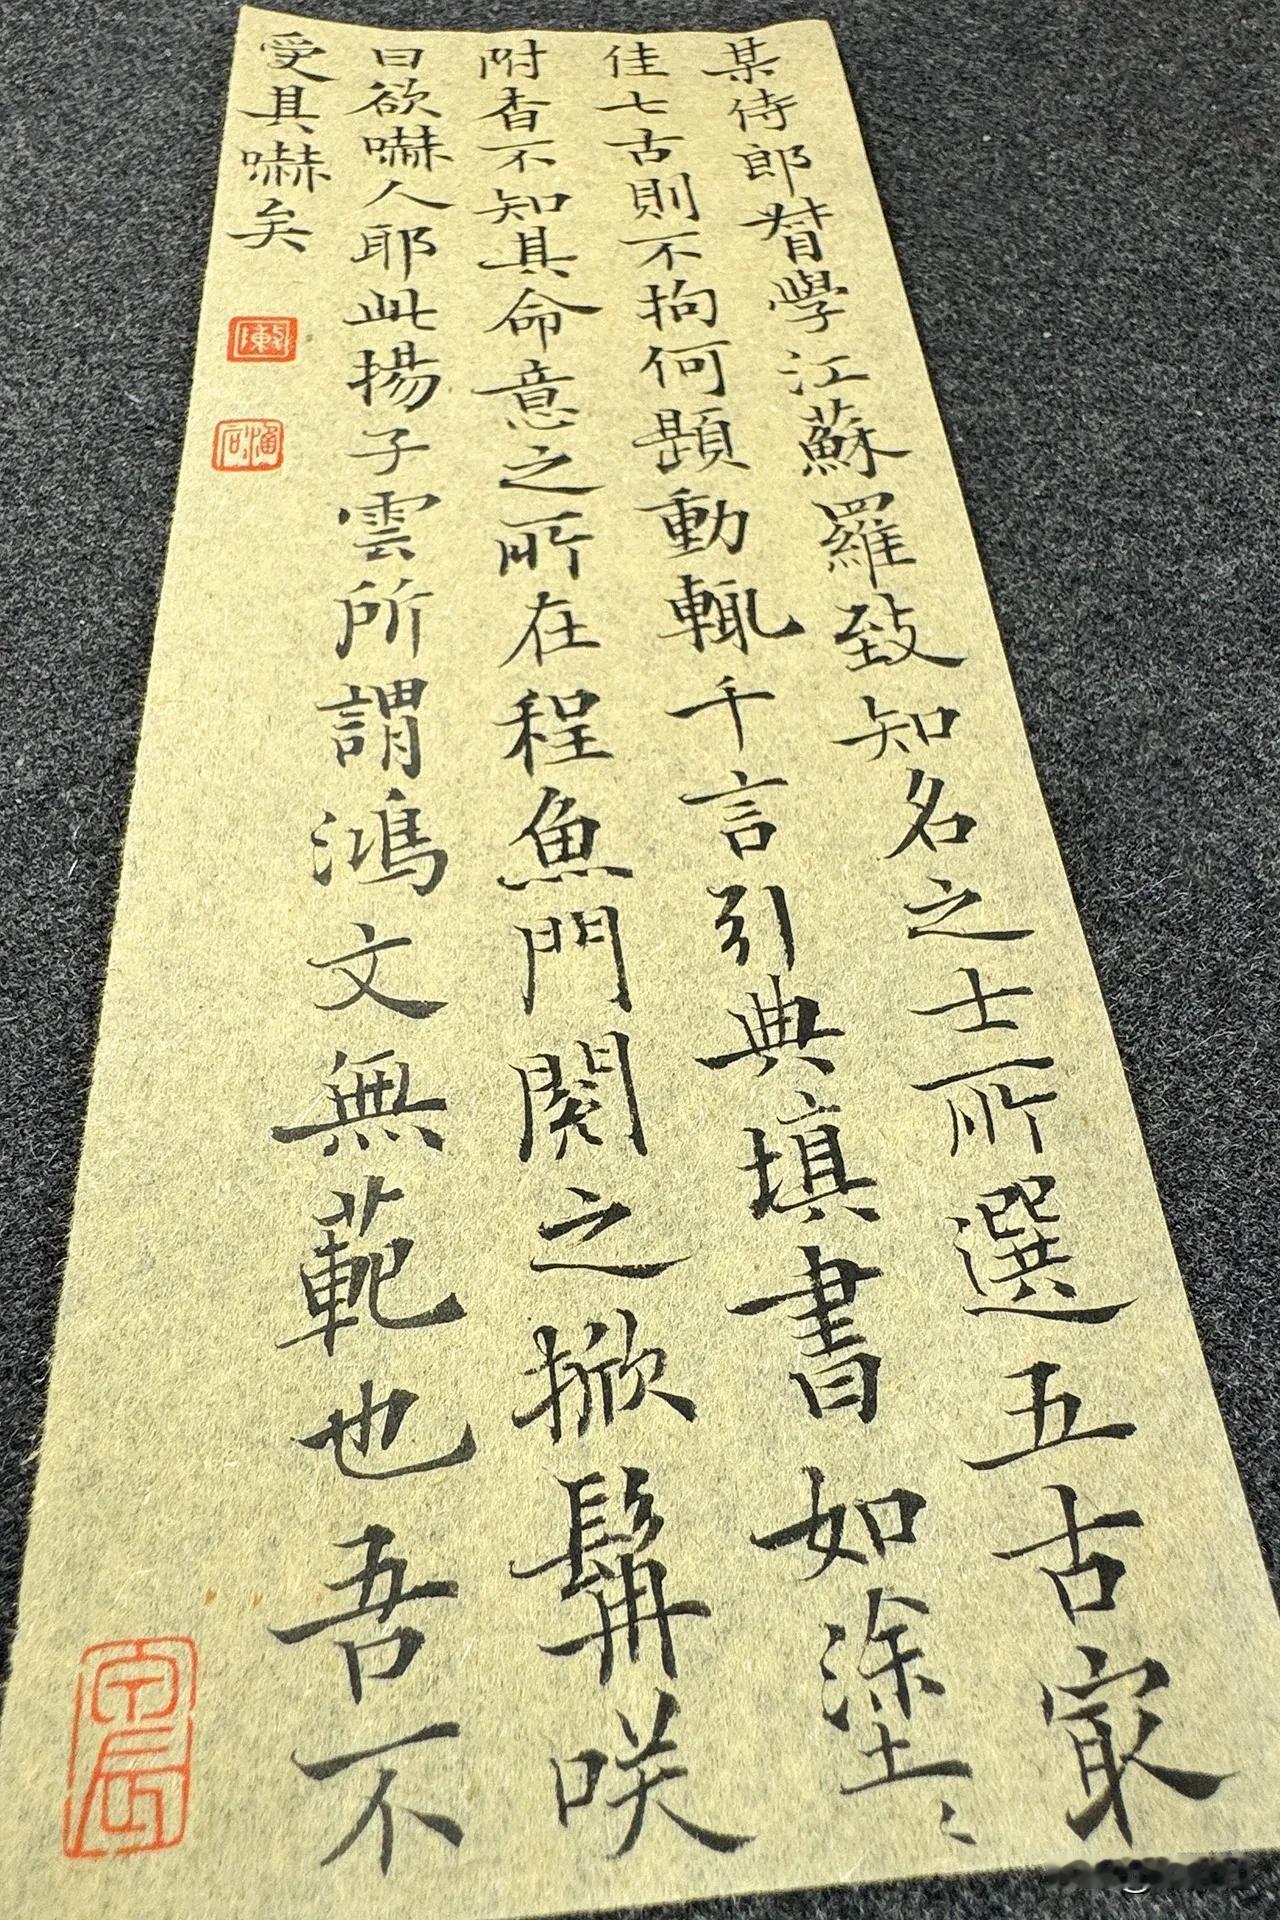 某侍郎督學江蘇羅致知名之士所選五古㝡
佳七古則不拘何題動輒千言引典填書如塗〻
附杳不知其命意之所在程魚門閱之掀髯咲
曰欲嚇人耶此揚子雲所謂鴻文無範也吾不
受其嚇矣